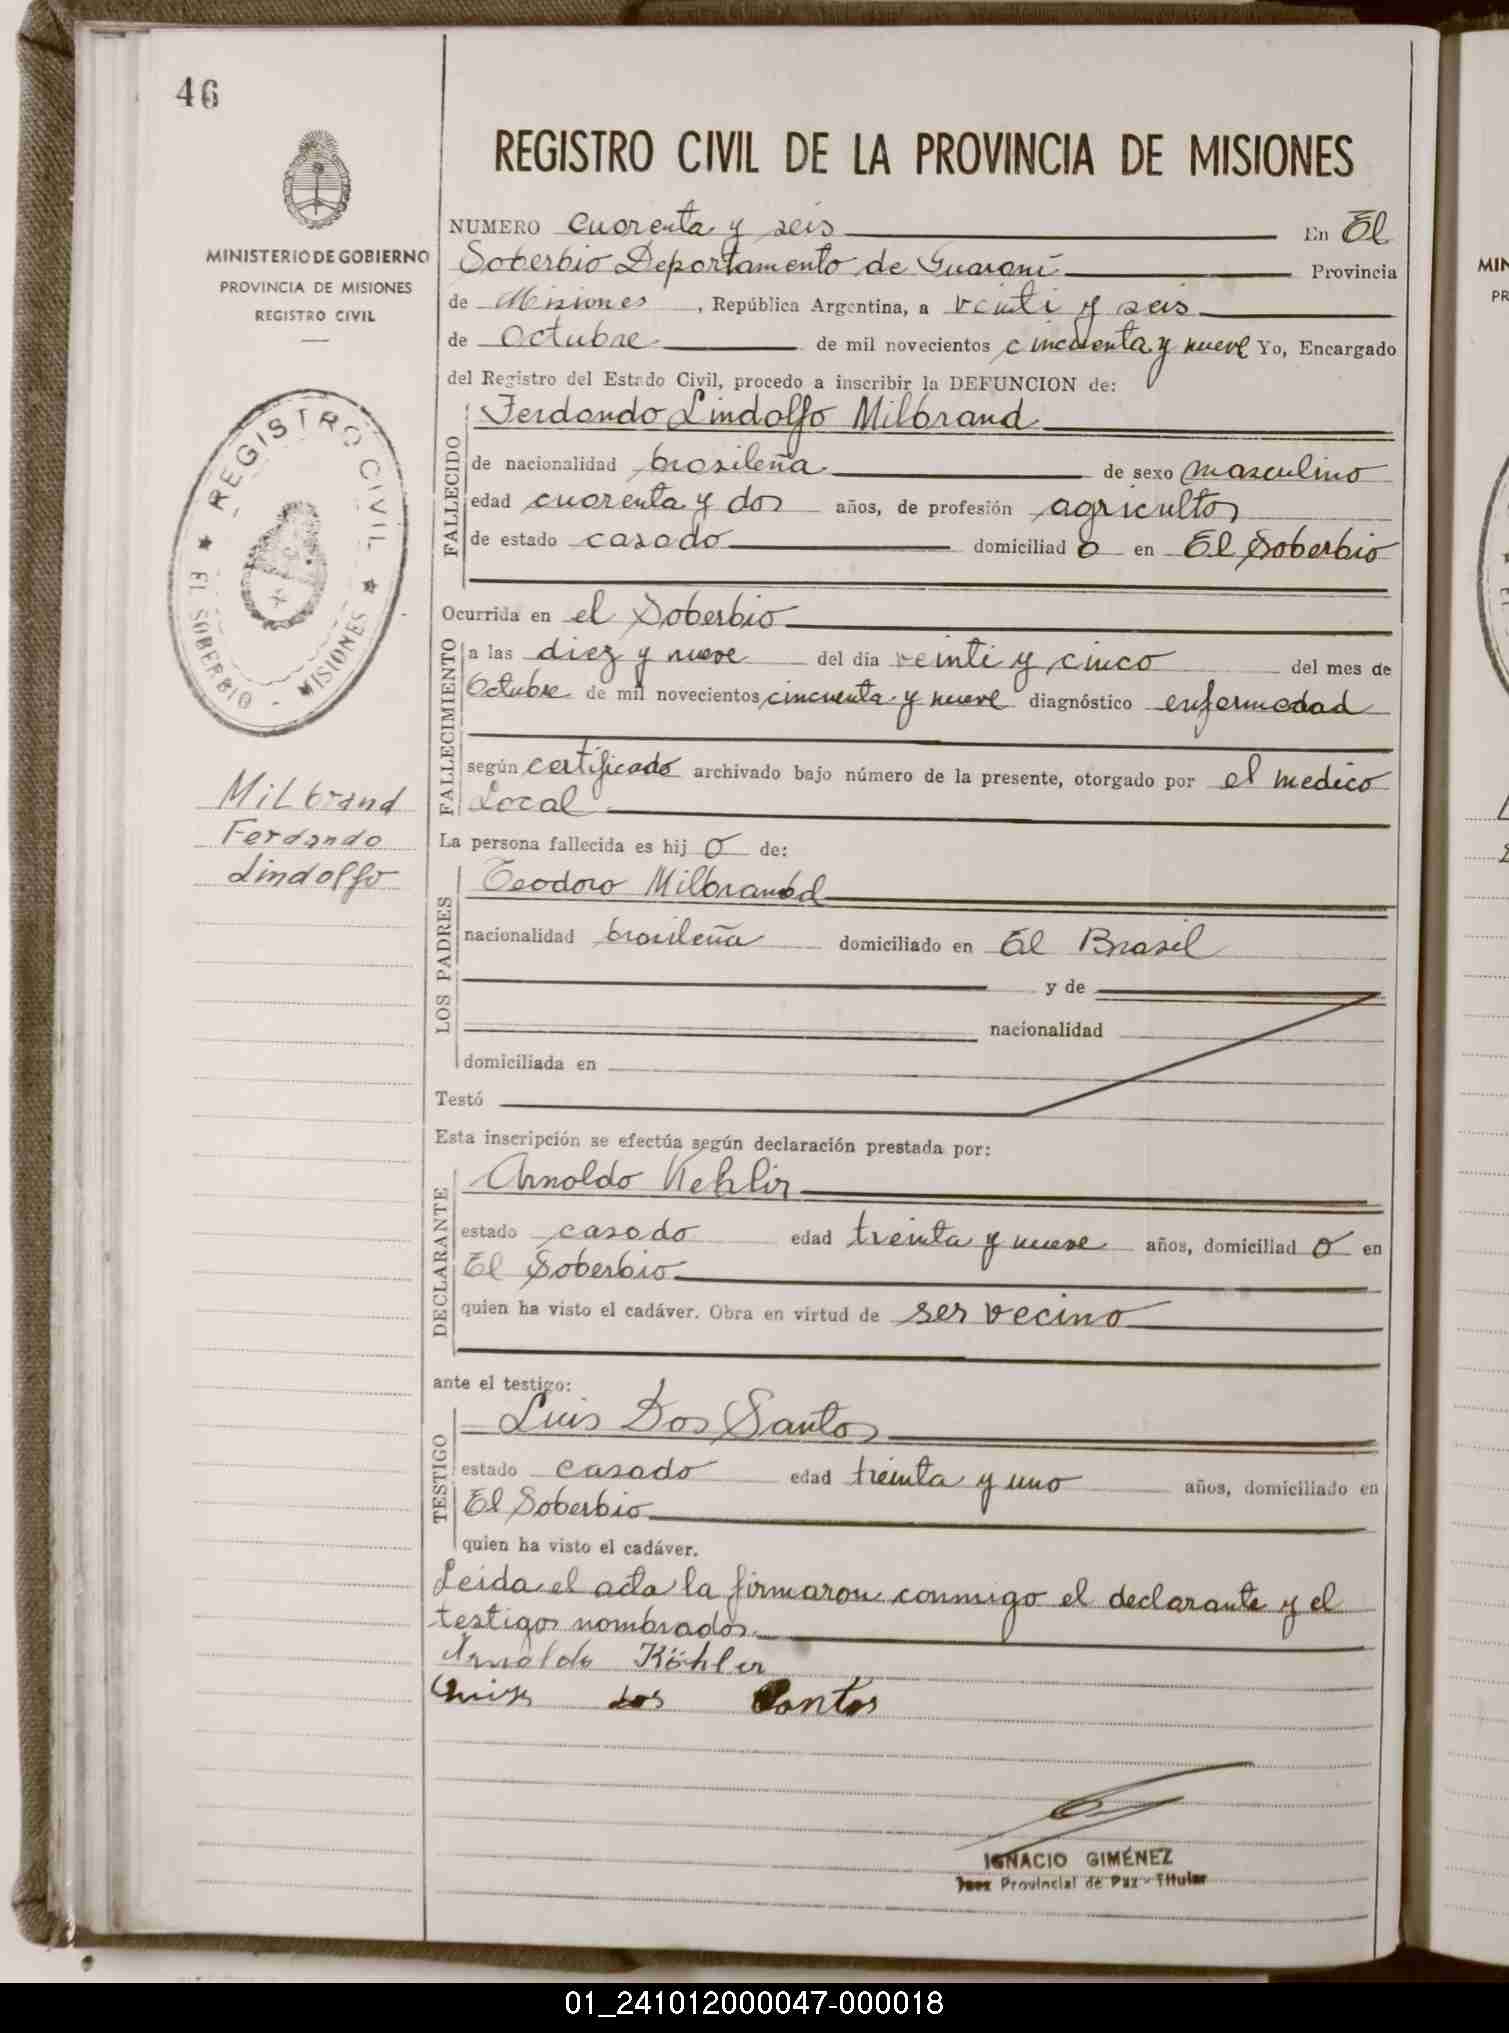 46
MINISTERIO DE GOBIERNO
PROVINCIA DE MISIONES
REGISTRO CIVIL
REGISTRO CIVIL
EL SOBERBIO - MISIONES
Milbrand
Ferdando
Lindolfo
REGISTRO CIVIL DE LA PROVINCIA DE MISIONES
NUMERO cuarenta y seis En El
Soberbio Departamento de Guaraní Provincia
de Misiones, República Argentina, a veinti y seis
de Octubre de mil novecientos cincuenta y nueve Yo, Encargado
del Registro del Estado Civil, procedo a inscribir la DEFUNCION de:
FALLECIDO
Ferdando Lindolfo Milbrand
de nacionalidad brasileña de sexo masculino
edad cuarenta y dos años, de profesión agricultor
de estado casado domiciliad o en El Soberbio
Ocurrida en el Soberbio
FALLECIMIENTO
a las diez y nueve del dia veinti y cinco del mes de
Octubre de mil novecientos cincuenta y nueve diagnóstico enfermedad
según certificado archivado bajo número de la presente, otorgado por el medico
Local
La persona fallecida es hij o de:
LOS PADRES
Teodoro Milbrand
nacionalidad brasileña domiciliado en El Brasil
y de
nacionalidad
domiciliada en
Testó
Esta inscripción se efectúa según declaración prestada por:
DECLARANTE
Arnoldo Kehlir
estado casado edad treinta y nueve años, domiciliad o en
El Soberbio
quien ha visto el cadáver. Obra en virtud de ser vecino
ante el testigo:
TESTIGO
Luis Dos Santos
estado casado edad treinta y uno años, domiciliado en
El Soberbio
quien ha visto el cadáver.
Leida el acta la firmaron conmigo el declarante y el
testigos nombrados.
Arnoldo Köhler
Luis dos Santos
IGNACIO GIMÉNEZ
Juez Provincial de Paz - Titular
MIN
PR
01_241012000047-000018